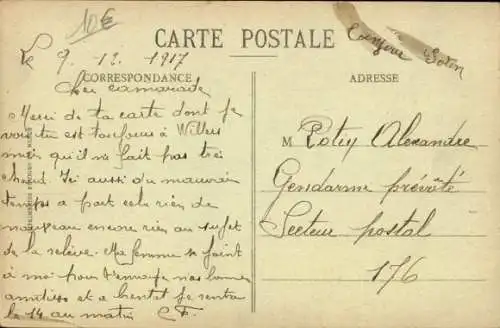 10€
CARTE POSTALE
Le 9. 12. 1917
CORRESPONDANCE
ADRESSE
Cher camarade
Merci de ta carte dont je
vois tu est toujours à Willers
mais qu'il ne fait pas très
chaud. Ici aussi du mauvais
temps a part cela rien de
nouveau encore rien au sujet
de la relève. Ma femme se joint
à moi pour t'envoyer nos bonnes
amitiées et a bientot je rentre
le 14 au matin C F.
M Potey Alexandre
Gendarme prévôté
Secteur postal
176